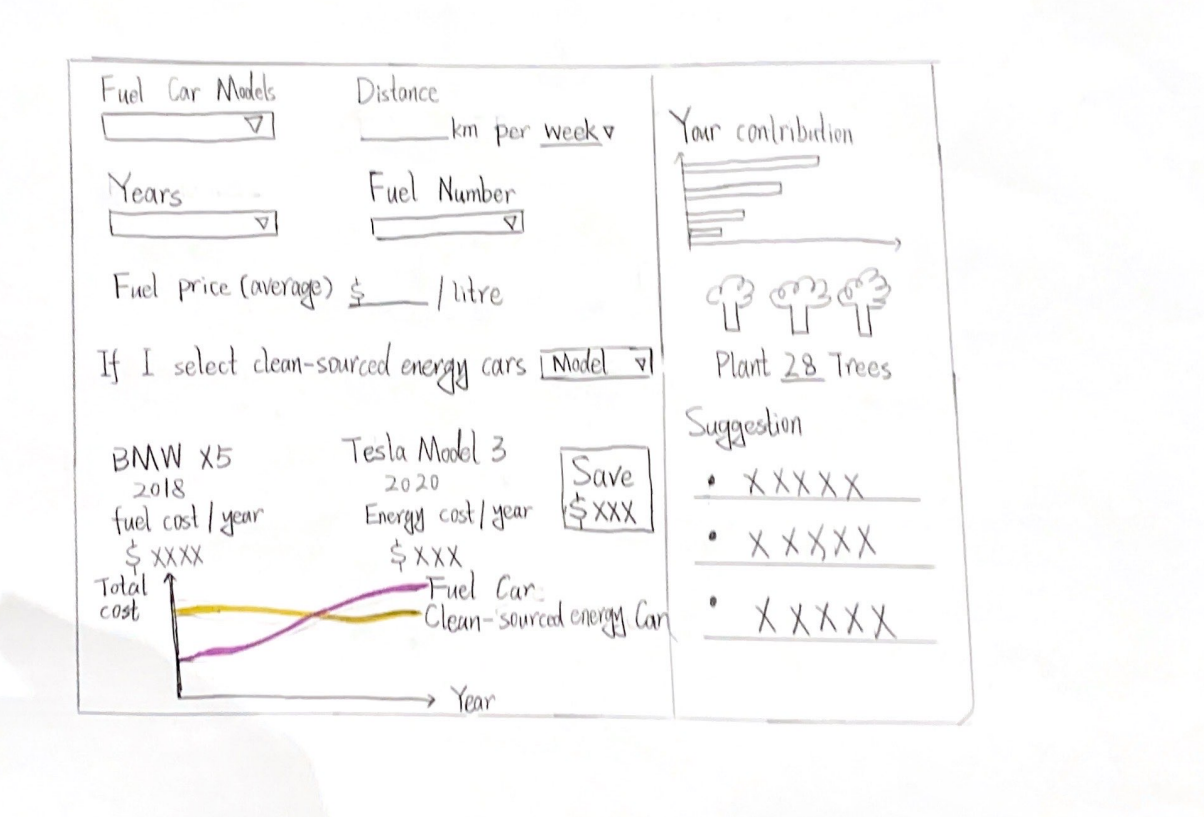 Fuel Car Models
Distance
km per week
Years
Fuel Number
Fuel price (average) $____ / litre
If I select clean-sourced energy cars Model
BMW X5
2018
fuel cost / year
$ XXXX
Tesla Model 3
2020
Energy cost / year
$ XXX
Save
$ XXX
Total
cost
Fuel Car
Clean-sourced energy Car
Year
Your contribution
Plant 28 Trees
Suggestion
• XXXXX
• XXXXX
• XXXXX